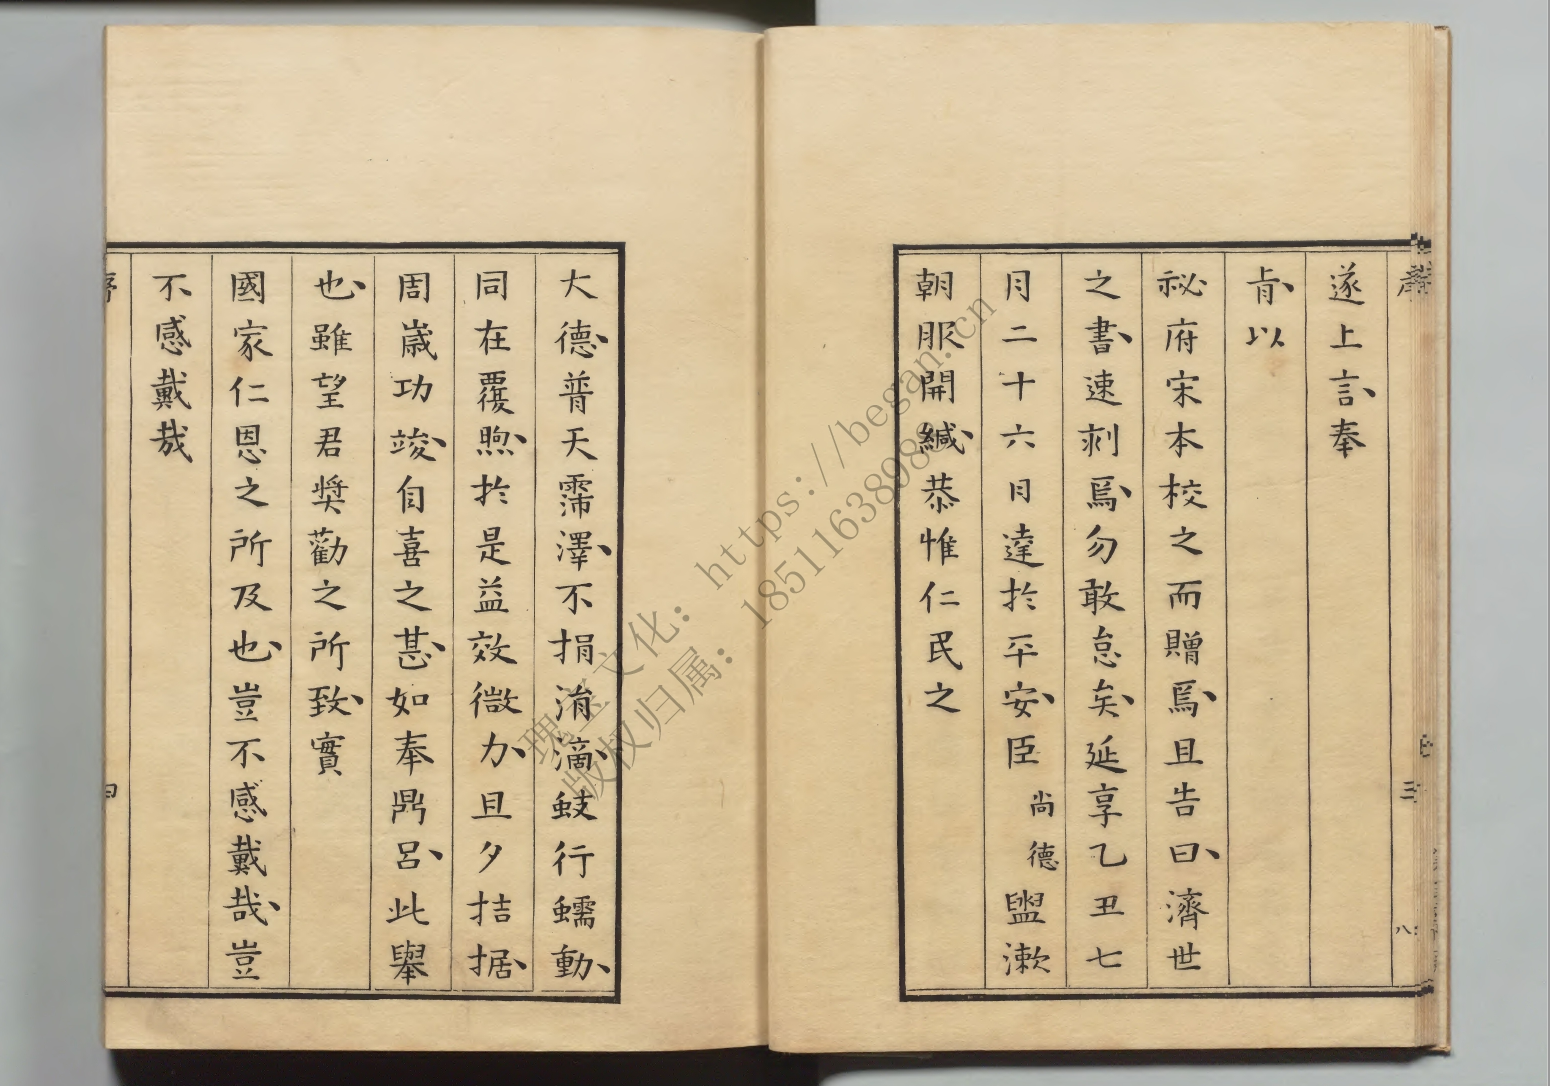 遂上言、奉
旨、以
祕府宋本校之而贈焉、且告曰、濟世
之書、速刺焉、勿敢怠矣、延享乙丑七
月二十六日達於平安、臣尚德盥漱
朝服開緘、恭惟仁民之
大德、普天霈澤、不捐涓滴、蚑行蠕動、
同在覆煦、於是益效微力、旦夕拮据、
周歲功竣、自喜之甚、如奉鼎呂、此舉
也、雖望君獎勸之所致、實
國家仁恩之所及也、豈不感戴哉、豈
不感戴哉
三
瑰宝文化：https://began.cn
版权归属：18511638086